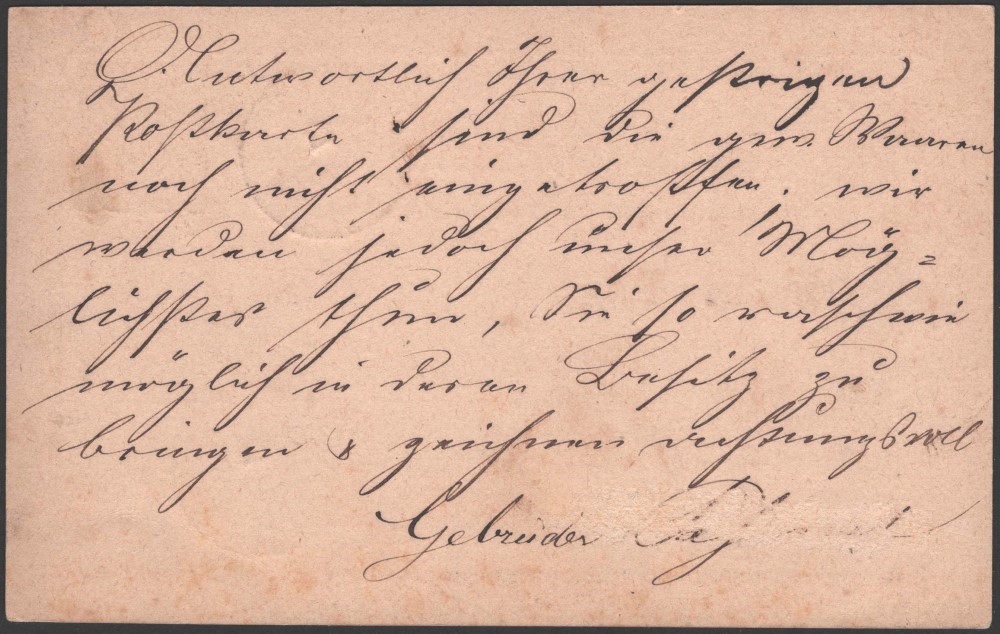 Antwortlich Ihrer gestrigen
Postkarte sind die gew. Waaren
noch nicht eingetroffen. wir
werden jedoch unser Mög=
lichstes thun, Sie so rasch wie
möglich in deren Besitz zu
bringen & zeichnen achtungsvoll
Gebrüder